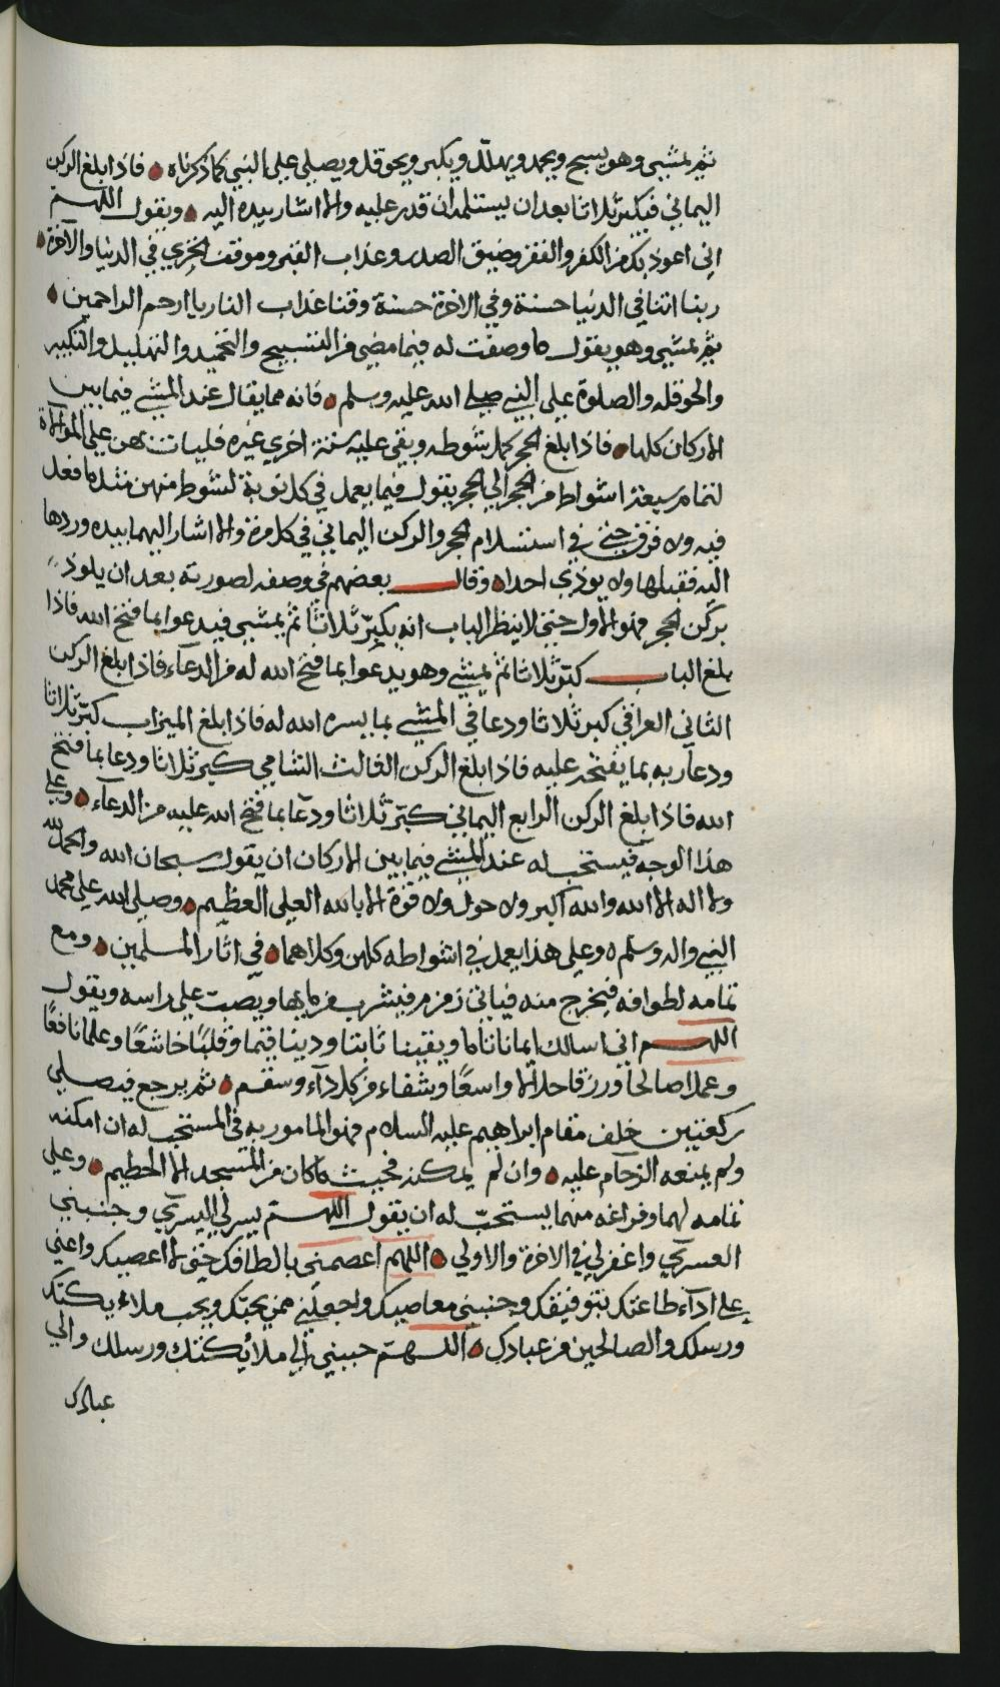 ثم يمشي وهو يسبح ويحمد ويهلل ويكبر ويحوقل ويصلي على النبي كما ذكرناه فاذا بلغ الركن
اليماني فيكبر ثلاثا بعد ان يستلمه ان قدر عليه والا اشار بيده اليه ويقول اللهم
اني اعوذ بك من الكفر والفقر وضيق الصدر وعذاب القبر وموقف الخزي في الدنيا والآخرة
ربنا اتنا في الدنيا حسنة وفي الاخرة حسنة وقنا عذاب النار يا ارحم الراحمين
ثم يمشي وهو يقول ما وصفت له فيما مضى من التسبيح والتحميد والتهليل والتكبير
والحوقله والصلوة على النبي صلى الله عليه وسلم فانه مما يقال عند المشي فيما بين
الاركان كلها فاذا بلغ الحجر كمل شوطه وبقي عليه ستة اخرى غيره فليات بهن على الموالاة
لتمام سبعة اشواط من الحجر الى الحجر يقول فيما يعمل في كل نوبة لشوط منهن مثل ما فعل
فيه ولا فرق حتى في استلام الحجر والركن اليماني في كل مرة والا اشار اليهما بيده وردها
اليه فقبلها ولا يوذي احدا وقال بعضهم في وصفه لصورته بعد ان يلوذ
بركن الحجر فهو الاول حتى لا ينظر الباب انه يكبّر ثلاثا ثم يمشي فيدعو بما فتح الله فاذا
بلغ الباب كبّر ثلاثا ثم يمشي وهو يدعوا بما فتح الله له من الدعاء فاذا بلغ الركن
الثاني العراقي كبر ثلاثا ودعا في المشي بما يسره الله له فاذا بلغ الميزاب كبّر ثلاثا
ودعا ربه بما يفتحه عليه فاذا بلغ الركن الثالث الشامي كبر ثلاثا ودعا بما فتح
الله فاذا بلغ الركن الرابع اليماني كبّر ثلاثا ودعا بما فتح الله عليه من الدعآء وعلى
هذا الوجه فيستحب له عند المشي فيما بين الاركان ان يقول سبحان الله والحمد لله
ولا اله الا الله والله اكبر ولا حول ولا قوة الا بالله العلي العظيم وصلى الله على محمد
النبي واله وسلم وعلى هذا يعمل في اشواطه كلهن وكلاهما في اثار المسلمين ومع
تمامه لطوافه فيخرج منه فياتي زمزم فيشرب من مايها ويصب على راسه ويقول
اللهم اني اسالك ايمانا تاما ويقينا ثابتا ودينا قيما وقلبًا خاشعًا وعلما نافعًا
وعملا صالحا ورزقا حلالا واسعًا وشفاء من كل دآء وسقم ثم يرجع فيصلي
ركعتين خلف مقام ابراهيم عليه السلام فهو المامور به في المستحب له ان امكنه
ولم يمنعه الزحام عليه وان لم يمكنه فحيث ما كان من المسجد الا الحطيم وعلى
تمامه لهما وفراغه منهما يستحبّ له ان يقول اللهم يسر لي اليسرى وجنبني
العسرى واغفر لي في الاخرة والاولى اللهم اعصمني بالطافك حتى لا اعصيك واعني
على ادآء طاعتك بتوفيقك وجنبني معاصيك واجعلني ممن يحبّك ويحب ملائكتك
ورسلك والصالحين من عبادك اللهم حببني الى ملائكتك ورسلك والى
عبادك